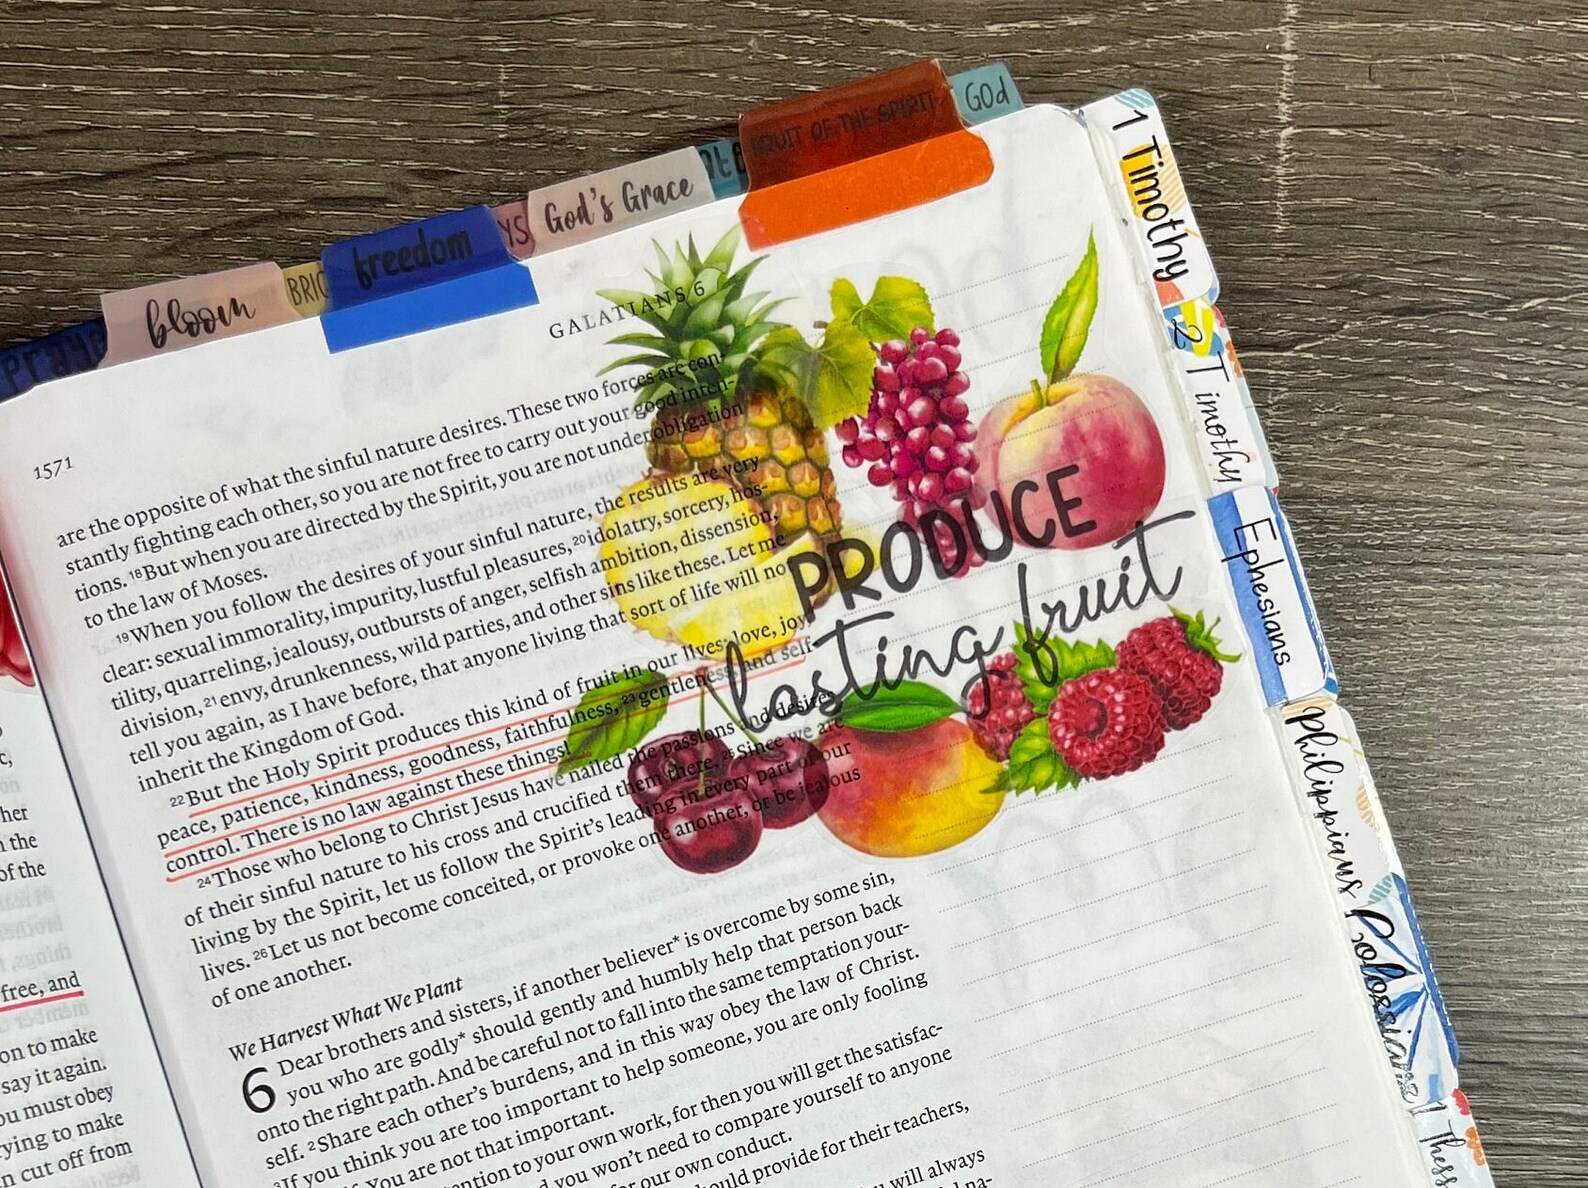 Praye
bloom
BRIC
freedom
YS
God's Grace
FRUIT OF THE SPIRIT
GOd
1 Timothy
2 Timothy
Ephesians
Philippians
Colossians
1 Thess
1571
GALATIANS 6
are the opposite of what the sinful nature desires. These two forces are con-
stantly fighting each other, so you are not free to carry out your good inten-
tions. 18 But when you are directed by the Spirit, you are not under obligation
to the law of Moses.
19 When you follow the desires of your sinful nature, the results are very
clear: sexual immorality, impurity, lustful pleasures, 20 idolatry, sorcery, hos-
tility, quarreling, jealousy, outbursts of anger, selfish ambition, dissension,
division, 21 envy, drunkenness, wild parties, and other sins like these. Let me
tell you again, as I have before, that anyone living that sort of life will no
inherit the Kingdom of God.
22 But the Holy Spirit produces this kind of fruit in our lives: love, joy,
peace, patience, kindness, goodness, faithfulness, 23 gentleness, and self
control. There is no law against these things!
24 Those who belong to Christ Jesus have nailed the passions and desires
of their sinful nature to his cross and crucified them there. 25 Since we are
living by the Spirit, let us follow the Spirit's leading in every part of our
lives. 26 Let us not become conceited, or provoke one another, or be jealous
of one another.
PRODUCE
lasting fruit
We Harvest What We Plant
6 Dear brothers and sisters, if another believer* is overcome by some sin,
you who are godly* should gently and humbly help that person back
onto the right path. And be careful not to fall into the same temptation your-
self. 2 Share each other's burdens, and in this way obey the law of Christ.
3 If you think you are too important to help someone, you are only fooling
You are not that important.
ention to your own work, for then you will get the satisfac-
d you won't need to compare yourself to anyone
for our own conduct.
ould provide for their teachers,
u will always
her
n the
of the
free, and
on to make
say it again.
ou must obey
rying to make
n cut off from